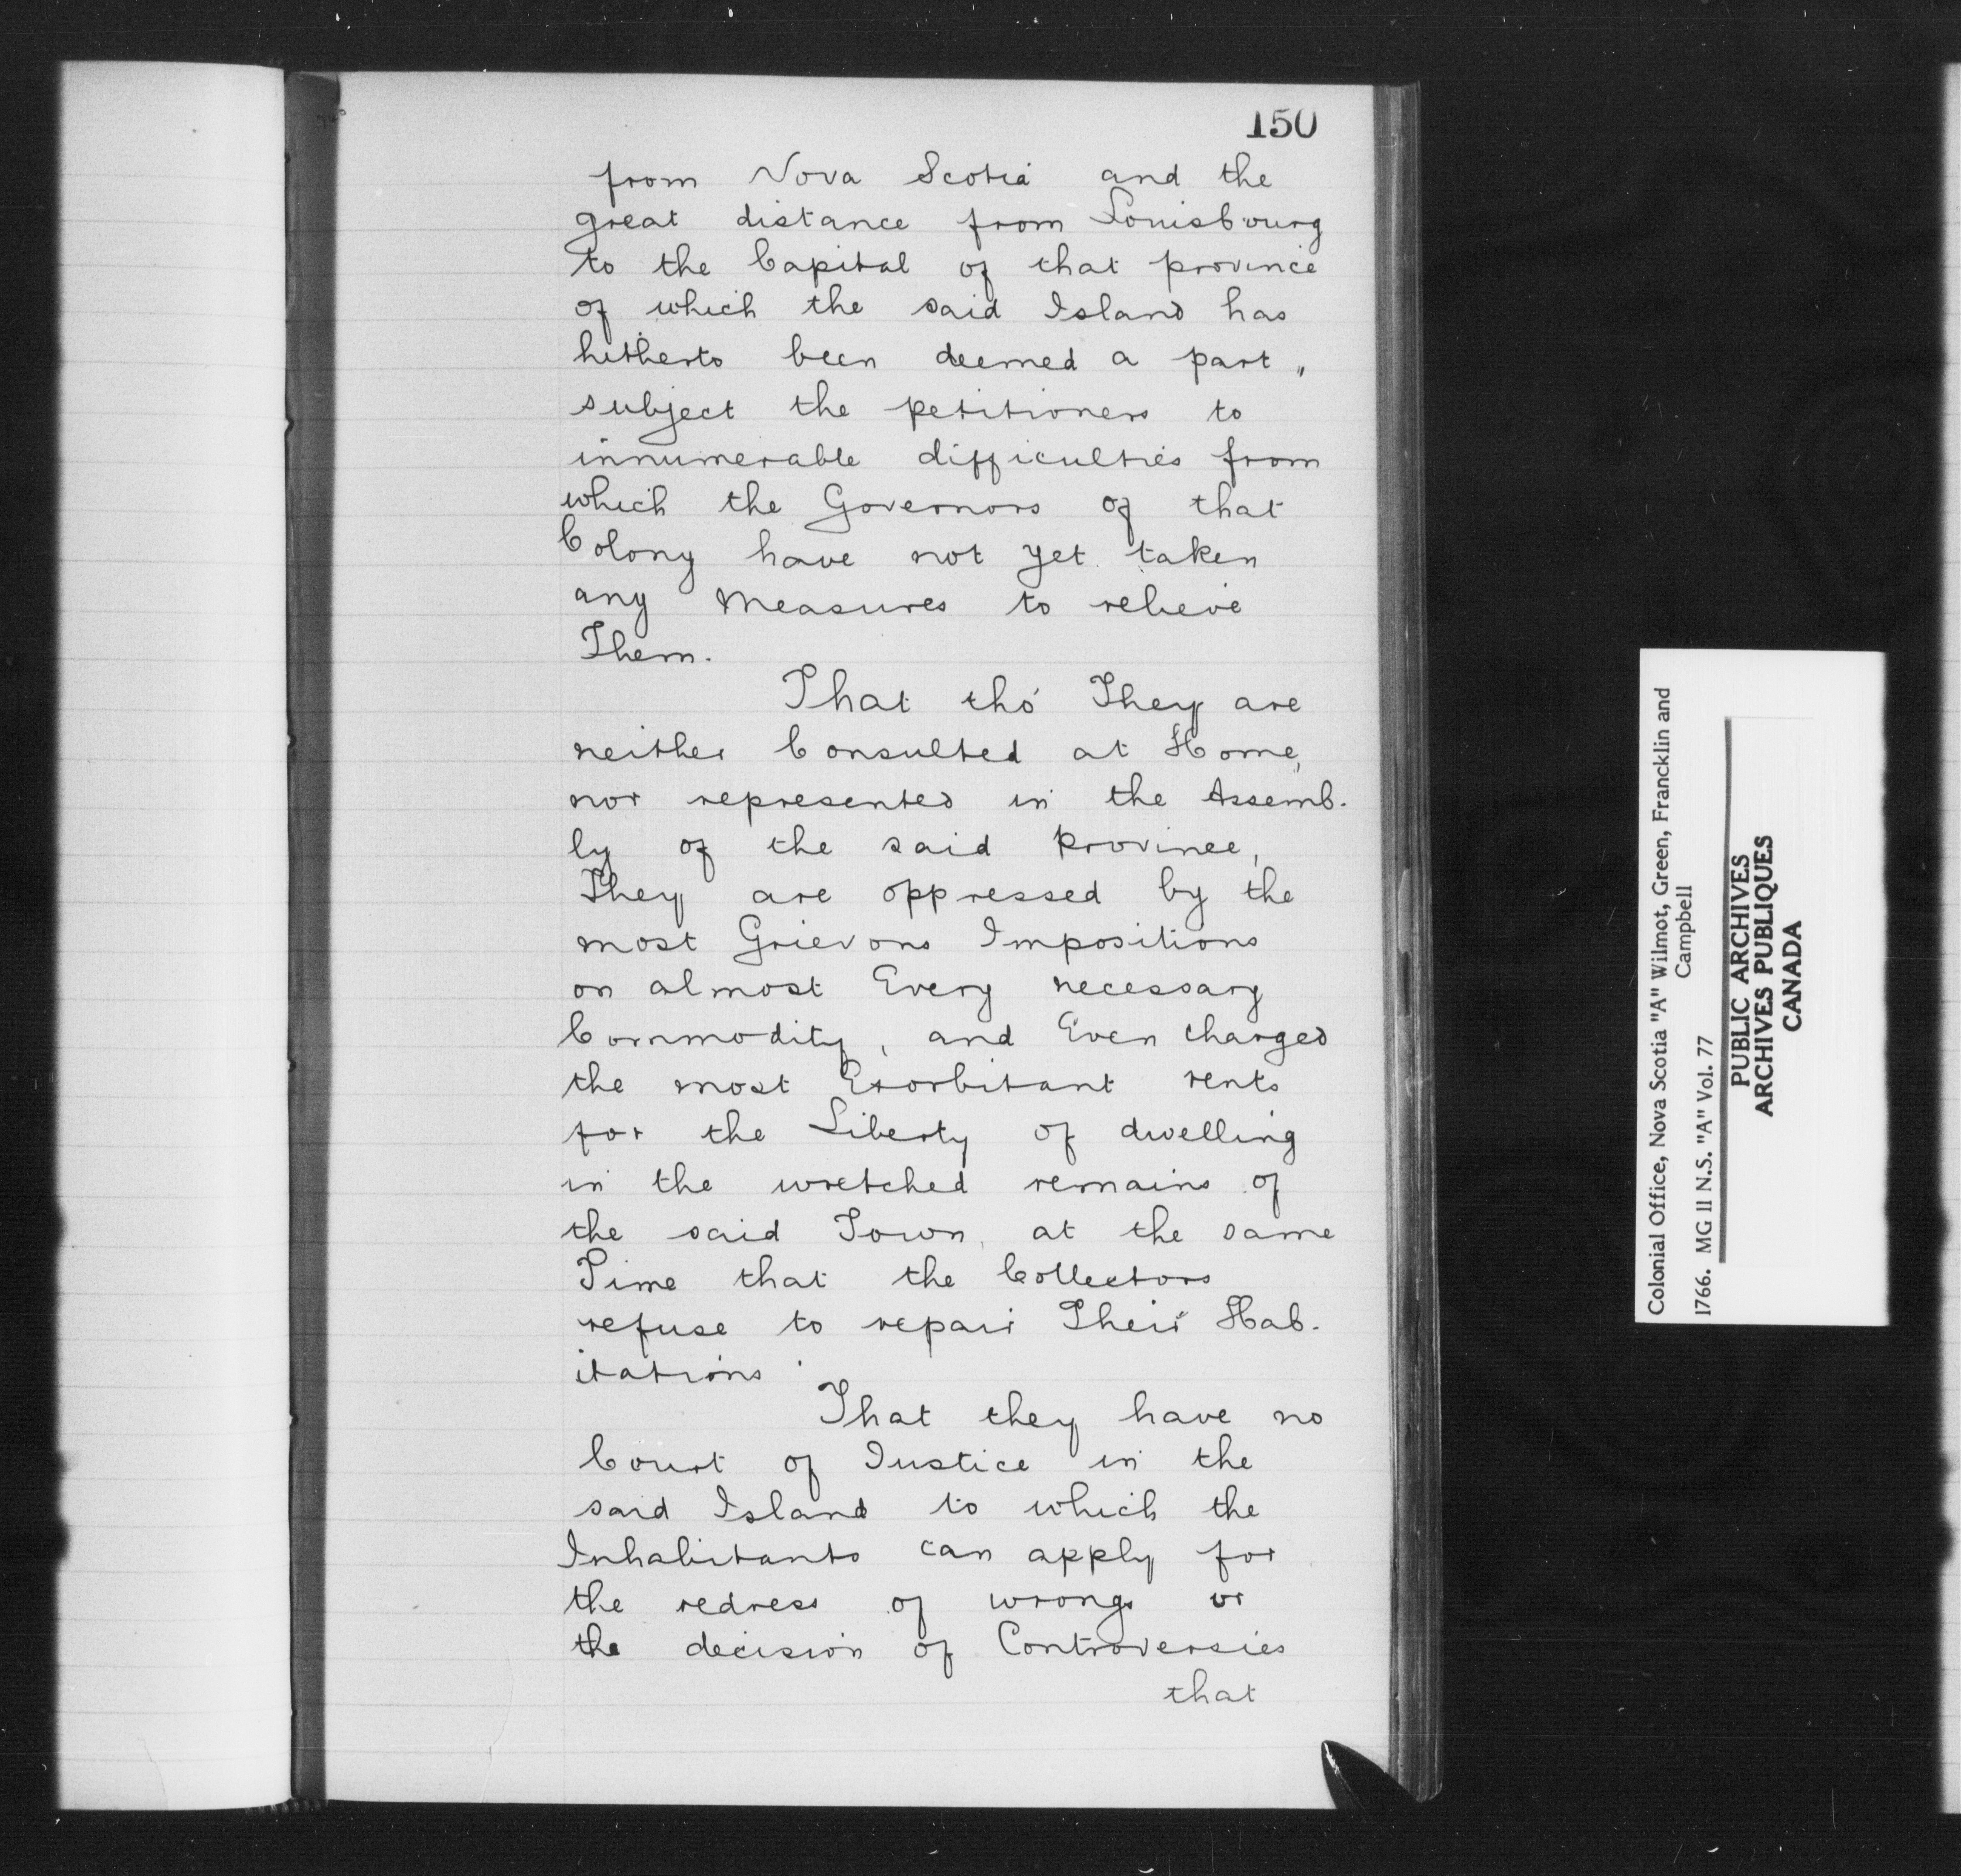 150
from Nova Scotia and the
great distance from Louisbourg
to the Capital of that province
of which the said Island has
hitherto been deemed a part,,
subject the petitioners to
innumerable difficulties from
which the Governors of that
Colony have not yet taken
any Measures to relieve
Them.
That tho' They are
neither Consulted at Home,
nor represented in the Assemb-
ly of the said Province,
They are oppressed by the
most Grievous Impositions
on almost Every necessary
Commodity, and Even Charged
the most Exorbitant rents
for the Liberty of dwelling
in the wretched remains of
the said Town, at the same
Time that the Collectors
refuse to repair Their Hab-
itations.
That they have no
Court of Justice in the
said Island to which the
Inhabitants can apply for
the redress of wrongs or
the decision of Controversies
that
Colonial Office, Nova Scotia "A" Wilmot, Green, Francklin and
Campbell
1766. MG 11 N.S. "A" Vol. 77
PUBLIC ARCHIVES
ARCHIVES PUBLIQUES
CANADA